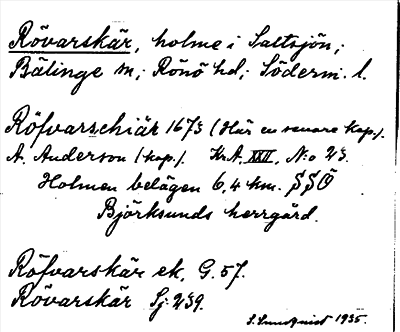 Rövarskär, holme i Saltsjön;
Bälinge sn; Rönö hd; Söderm. l.
Röfvarschiär 1673 (Här en senare kop.).
A. Anderson (kop.). Kr.A. XXII, N:o 23.
Holmen belägen 6,4 km. SSÖ
Björksunds herrgård.
Röfvarskär ek, G. 57.
Rövarskär Sj: 239.
S. Sundquist 1935.